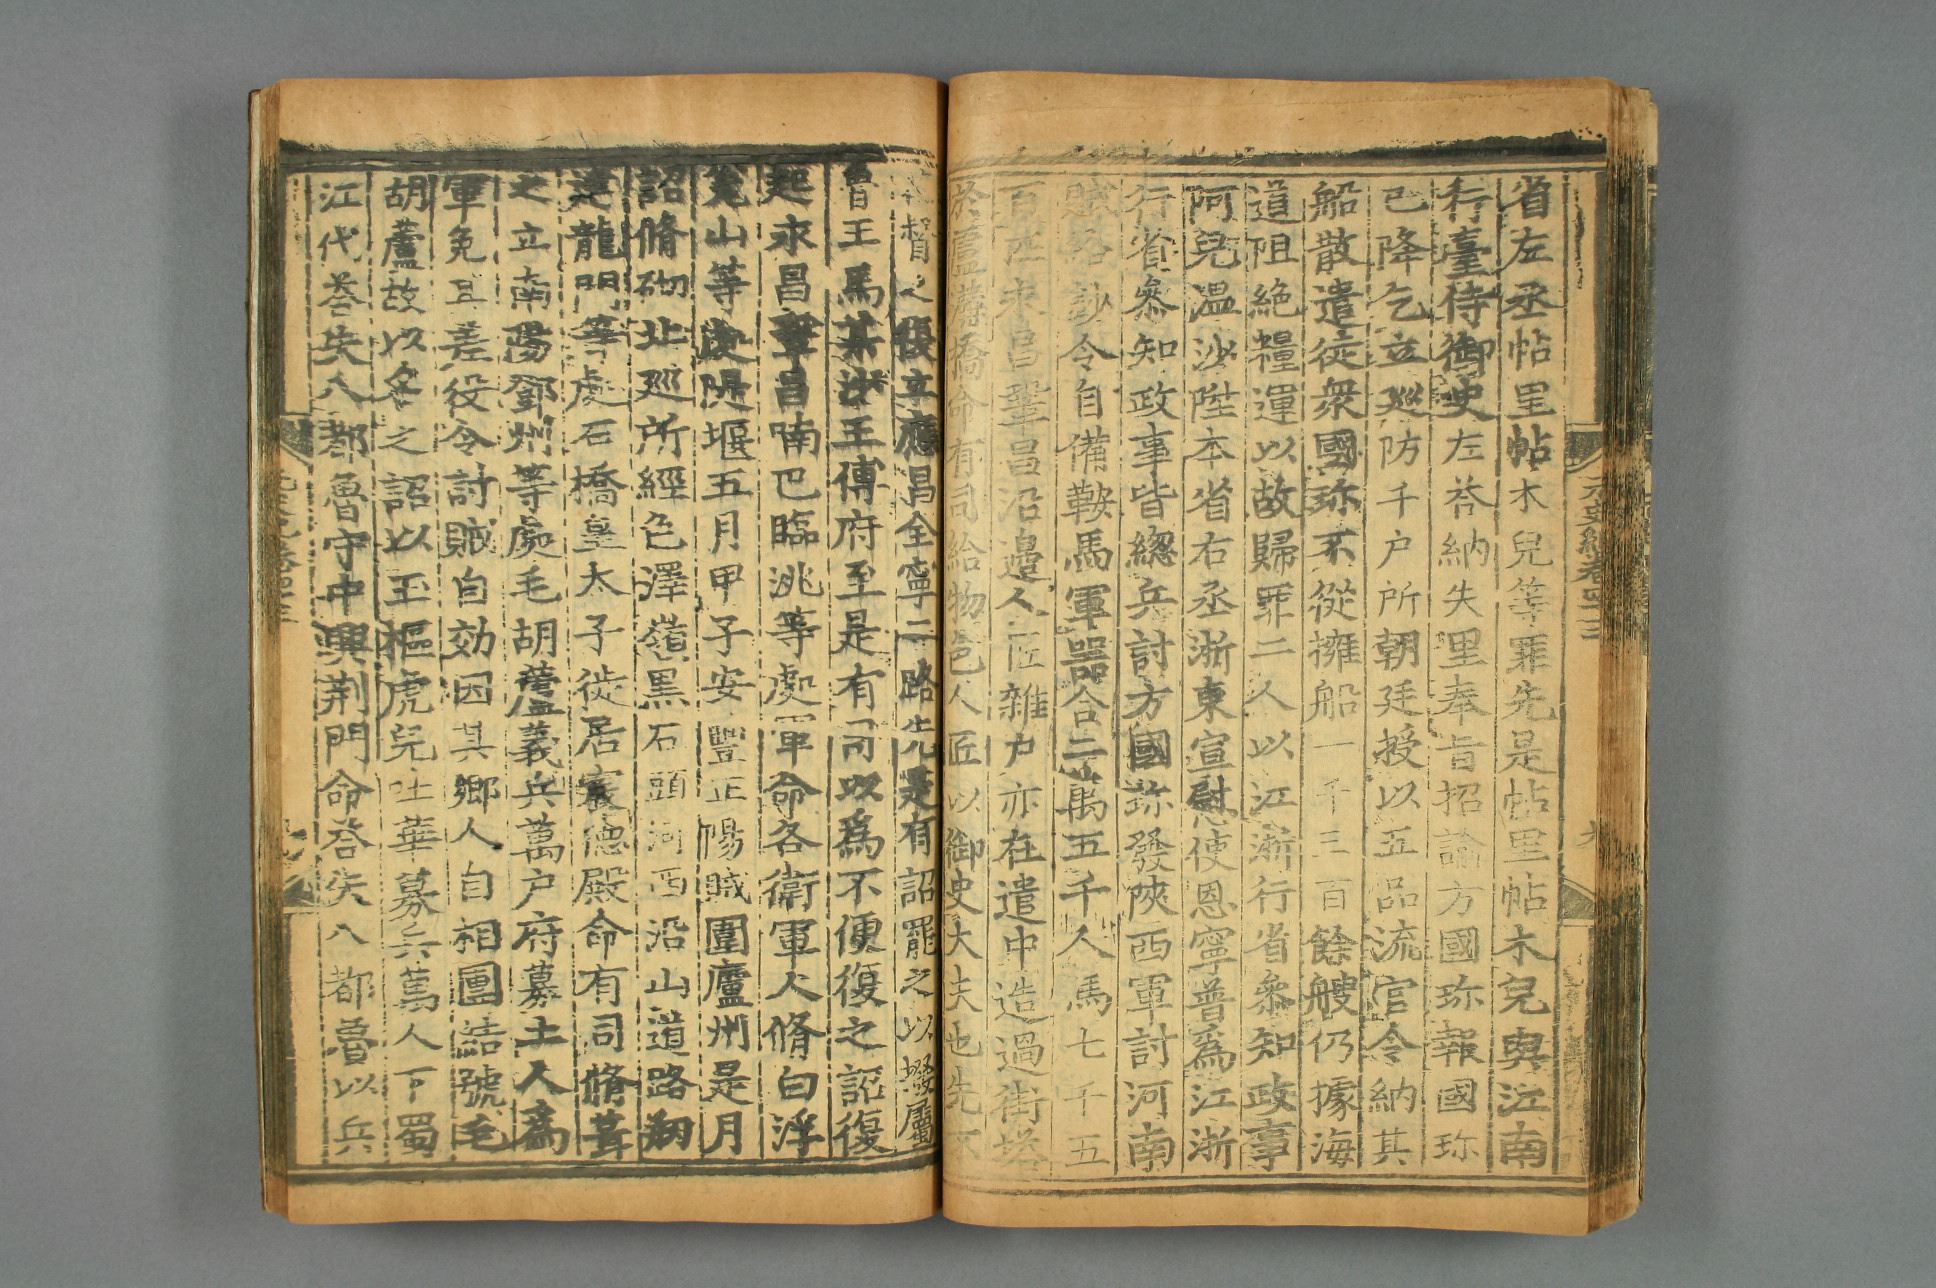 省左丞帖里帖木兒等罪先是帖里帖木兒與江南
行臺侍御史左荅納失里奉旨招諭方國珎報國珎
已降乞立廵防千户所朝廷授以五品流官令納其
船散遣徒衆國珎不從擁船一千三百餘艘仍據海
道阻絶糧運以故歸罪二人以江浙行省叅知政事
阿兒温沙陞本省右丞浙東宣慰使恩寧普爲江浙
行省叅知政事皆緫兵討方國珎發陜西軍討河南
賊給鈔令自備鞍馬軍器合二萬五千人馬七千五
百匹永昌鞏昌沿邊人匠雜户亦在遣中造過街塔
於蘆溝橋命有司給物色人匠以御史大夫也先不
督之復立應昌全寧二路先是有詔罷之以撥屬
魯王馬某沙王傅府至是有司以爲不便復之詔復
起永昌鞏昌喃巴臨洮等處軍命各衛軍人脩白浮
瓮山等處隄堰五月甲子安豐正陽賊圍廬州是月
詔脩砌北廵所經色澤嶺黑石頭河西沿山道路剏
建龍門等處石橋皇太子徙居宸德殿命有司脩葺
之立南陽鄧州等處毛胡蘆義兵萬户府募土人爲
軍免其差役令討賊自効因其鄉人自相團結號毛
胡蘆故以名之詔以玉樞虎兒吐華募兵萬人下蜀
江代荅失八都魯守中興荆門命荅失八都魯以兵
元史紀卷四十三
九